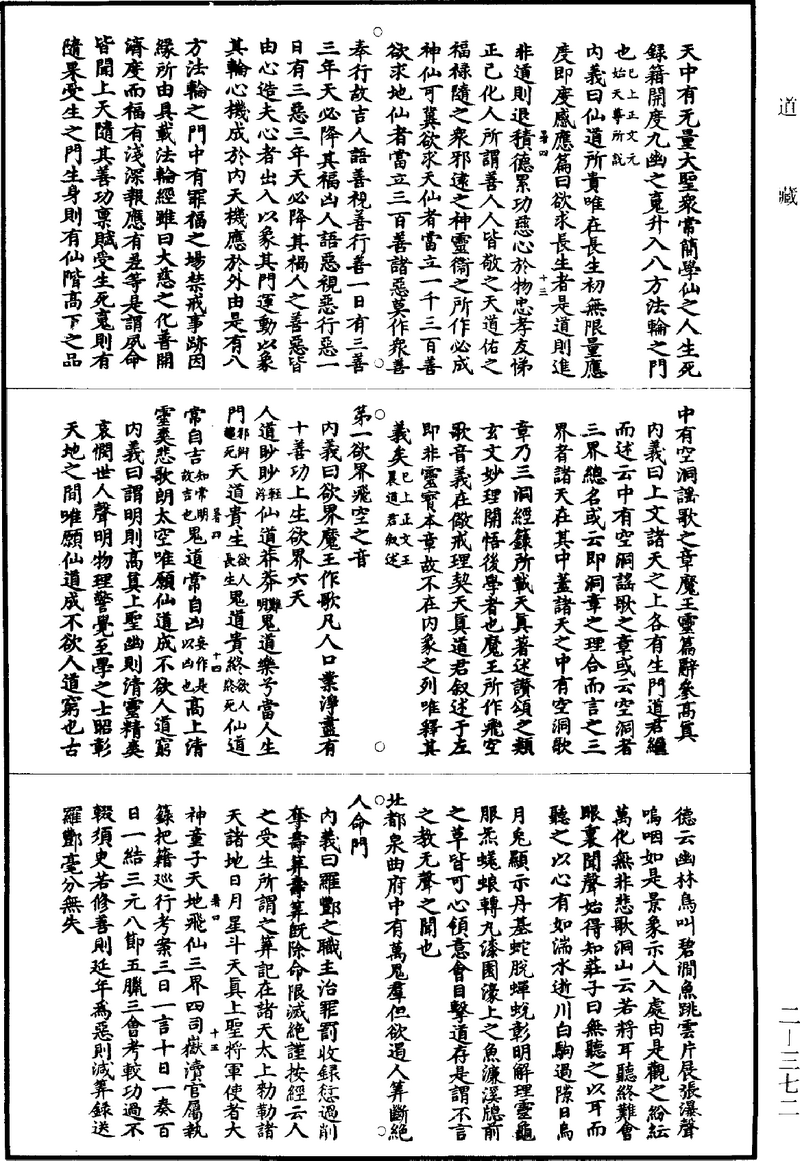 道藏
天中有无量大聖衆常簡學仙之人生死
録籍開度九幽之䰟升入八方法輪之門
也已上正文元始天尊所說
内義曰仙道所貴唯在長生初無限量應
度即度感應篇曰欲求長生者是道則進
署四 十三
非道則退積德累功慈心於物忠孝友悌
正己化人所謂善人人皆敬之天道佑之
福禄隨之衆邪遠之神靈衛之所作必成
神仙可冀欲求天仙者當立一千三百善
欲求地仙者當立三百善諸惡莫作衆善
奉行故吉人語善視善行善一日有三善
三年天必降其福凶人語惡視惡行惡一
日有三惡三年天必降其禍人之善惡皆
由心造夫心者出入以象其門運動以象
其輪心機成於内天機應於外由是有八
方法輪之門中有罪福之場禁戒事跡因
緣所由具載法輪經雖曰大慈之化普開
濟度而福有淺深報應有差等是謂夙命
皆開上天隨其善功禀賦受生死䰟則有
隨果受生之門生身則有仙階高下之品
中有空洞謡歌之章魔王靈篇辭參高真
内義曰上文諸天之上各有生門道君繼
而述云中有空洞謡歌之章或云空洞者
三界總名或云即洞章之理合而言之三
界者諸天在其中蓋諸天之中有空洞歌
章乃三洞經籙所載天真著述讚頌之類
玄文妙理開悟後學者也魔王所作飛空
歌音義在儆戒理契天真道君叙述于左
即非靈寳本章故不在内象之列唯釋其
義矣已上正文王晨道君叙述
第一欲界飛空之音
内義曰欲界魔王作歌凡人口業淨盡有
十善功上生欲界六天
人道眇眇輕浮仙道莽莽難明鬼道樂兮當人生
門邪幽魂死天道貴生欲人長生鬼道貴終欲人終死仙道
署四 十四
常自吉知常明故吉也鬼道常自凶妄作是以凶也高上清
靈爽悲歌朗太空唯願仙道成不欲人道窮
内義曰謂明則高真上聖幽則清靈精爽
哀憫世人聲明物理警覺至學之士昭彰
天地之間唯願仙道成不欲人道窮也古
德云幽林鳥叫碧澗魚跳雲片展張瀑聲
嗚咽如是景象示人入處由是觀之紛紜
萬化無非悲歌洞山云若將耳聽終難會
眼裏聞聲始得知莊子曰無聽之以耳而
聽之以心有如湍水逝川白駒過隙日烏
月兎顯示丹基蛇脫蟬蛻彰明解理靈龜
服炁蜣蜋轉丸漆園濠上之魚濂溪牕前
之草皆可心領意會目擊道存是謂不言
之教无聲之聞也
北都泉曲府中有萬鬼羣但欲遏人筭斷絶
人命門
内義曰羅酆之職主治罪罰收録愆過削
奪壽算壽算既除命限滅絶謹按經云人
之受生所謂之筭記在諸天太上勑勒諸
天諸地日月星斗天真上聖將軍使者大
署四 十五
神童子天地飛仙三界四司嶽瀆官屬執
籙把籍巡行考案三日一言十日一奏百
日一結三元八節五臘三會考較功過不
輟須臾若修善則延年為惡則減筭録送
羅酆毫分無失
二—三七二